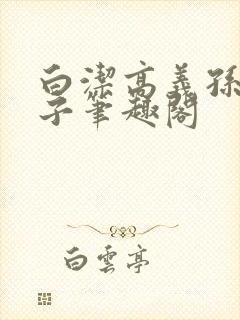 白潔高義孫
子筆趣閣
白雲亭